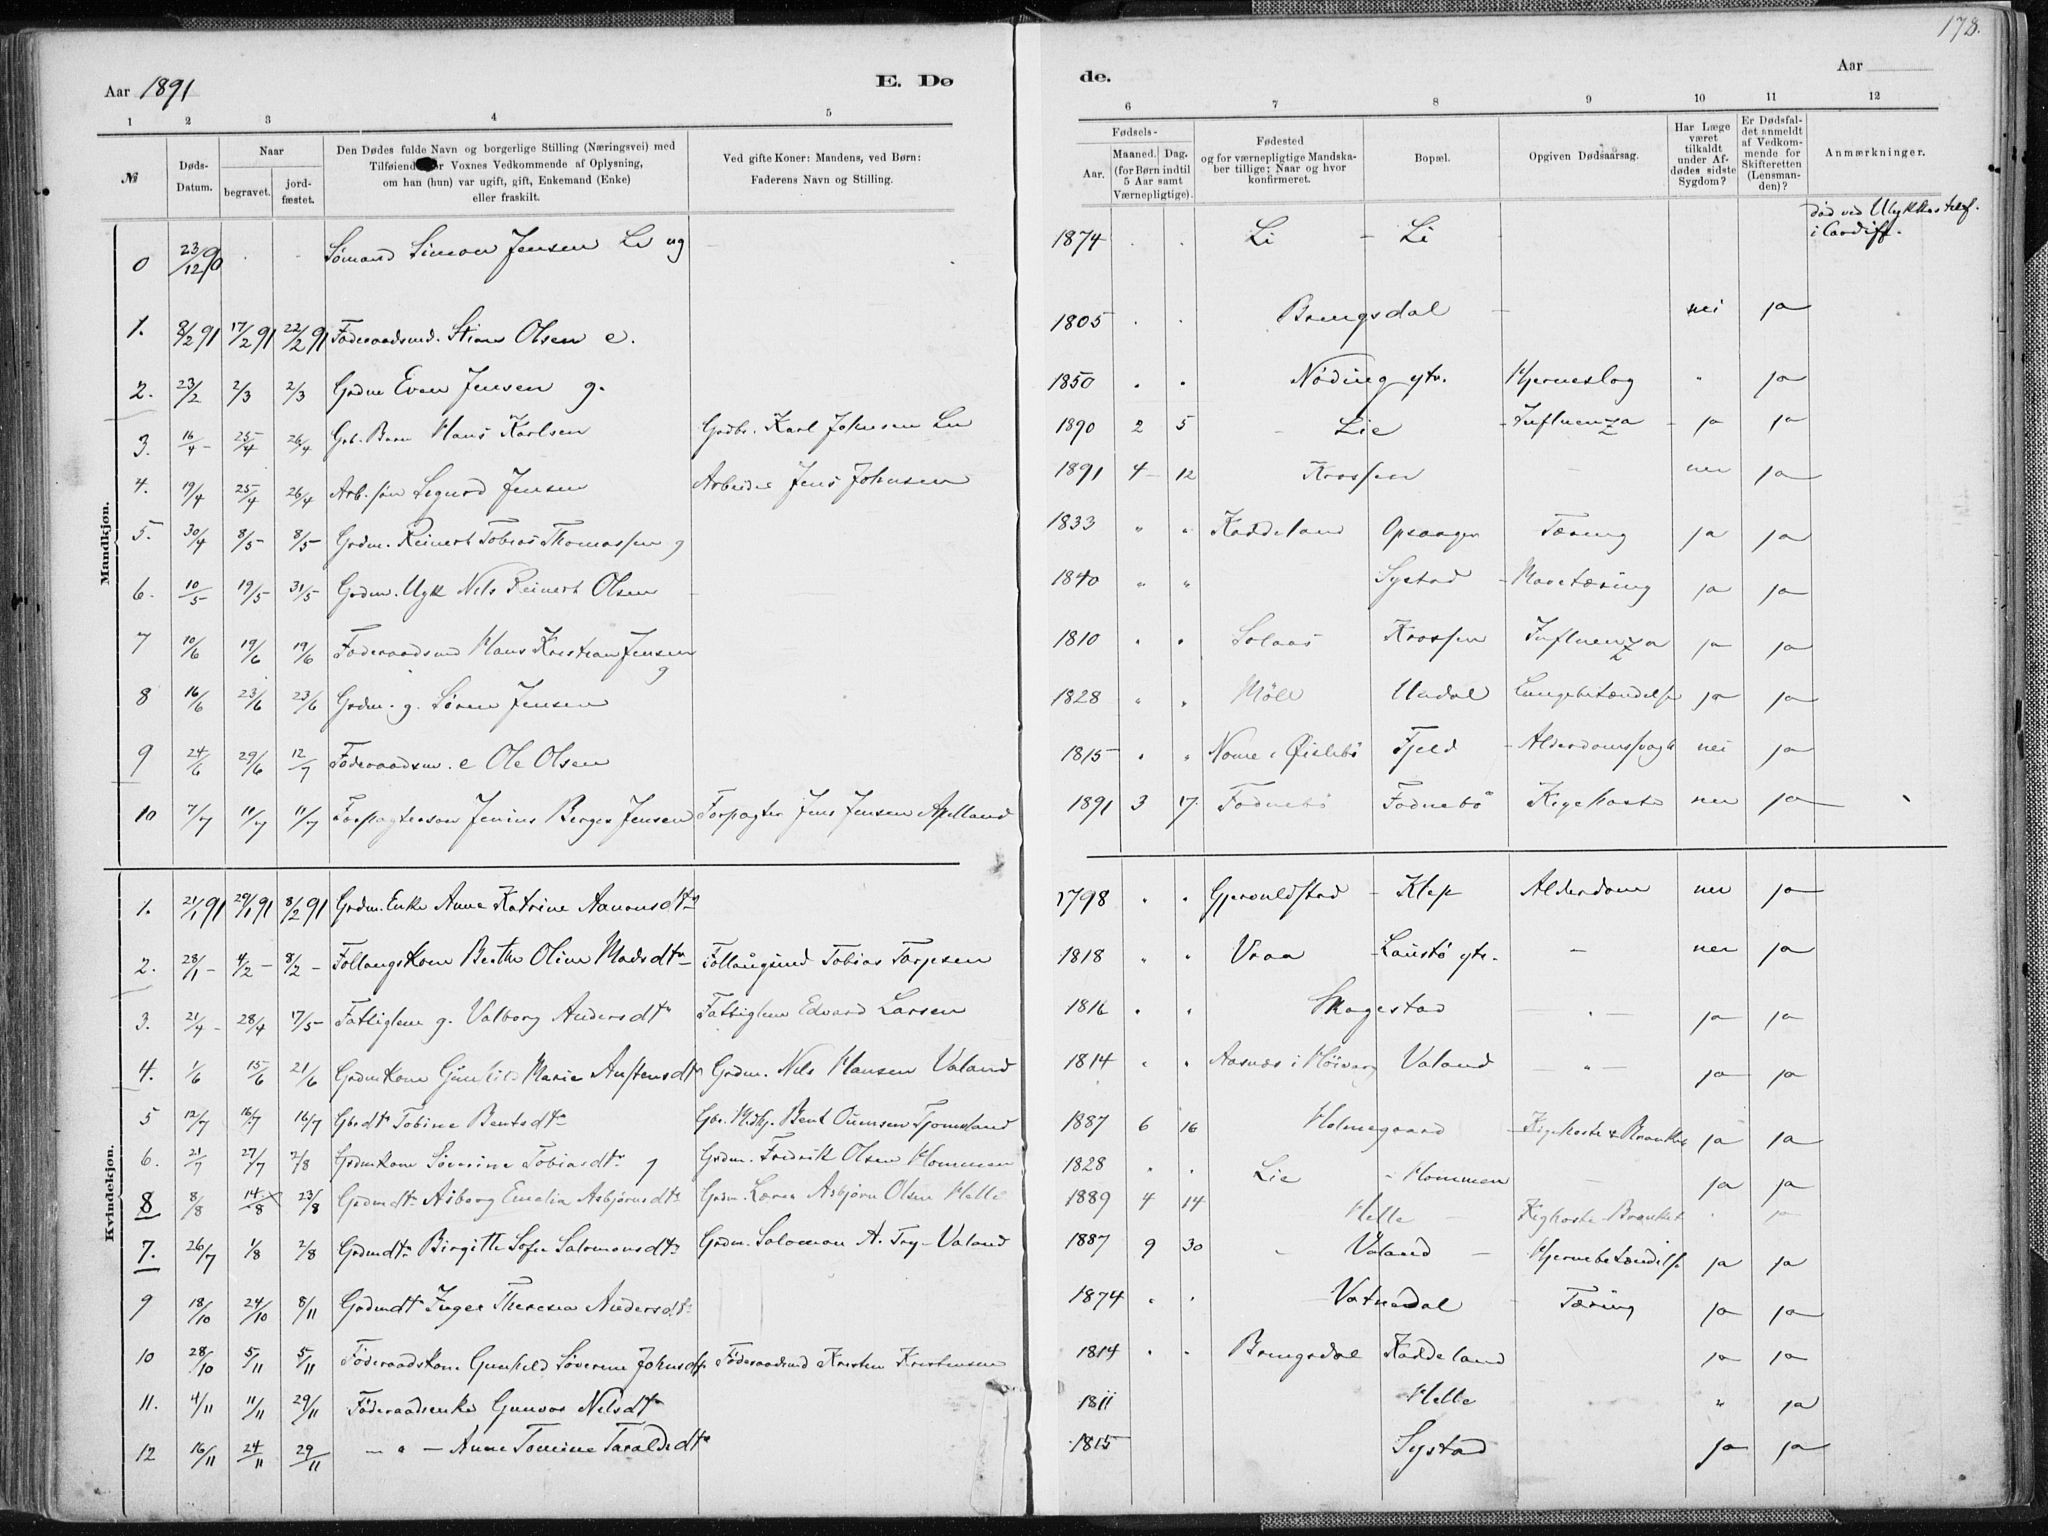 178.
Aar 1891 E. Dø de. Aar
1 2 3 4 5 6 7 8 9 10 11 12
№
Døds-
Datum.
Naar
begravet.
jord-
fæstet.
Den Dødes fulde Navn og borgerlige Stilling (Næringsvei) med
Tilføiende for Voxnes Vedkommende af Oplysning,
om han (hun) var ugift, gift, Enkemand (Enke)
eller fraskilt.
Ved gifte Koner: Mandens, ved Børn:
Faderens Navn og Stilling.
Fødsels-
Aar.
Maaned. Dag.
(for Børn indtil
5 Aar samt
Værnepligtige).
Fødested
og for værnepligtige Mandska-
ber tillige: Naar og hvor
konfirmeret.
Bopæl.
Opgiven Dødsaarsag.
Har Læge
været
tilkaldt
under Af-
dødes sidste
Sygdom?
Er Dødsfal-
det anmeldt
af Vedkom-
mende for
Skifteretten
(Lensman-
den)?
Anmærkninger.
Mandkjøn.
0 23/12 90 Sømand Simon Jensen Li ug 1874 Li - Li død ved Ulykkestilf.
i Cardiff.
1. 8/2 91 17/2 91 22/2 91 Føderaadsmd. Stian Olsen e. 1805 Bringsdal - nei ja
2. 23/2 2/3 2/3 Grdm Even Jensen g. 1850 Nöding ytr. Hjerneslag " ja
3. 16/4 - 25/4 26/4 Grb. Barn Hans Karlsen Grdbr. Karl Johnsen Li 1890 2 5 - Lie - Influenza - ja ja
4. 19/4 25/4 26/4 Arb. søn Sigurd Jensen Arbeider Jens Johnsen 1891 4 - 12 Krossen - nei ja
5. 30/4 8/5 8/5 Grdm. Reinert Tobias Thomassen g 1833 " " Kaddeland Opsanger Tæring ja ja
6. 10/5 19/5 31/5 Grdm. Ugk Nils Reinert Olsen - 1840 " " Systad - Mavetæring ja ja
7 10/6 19/6 19/6 Føderaadsmd Hans Kristian Jensen g 1810 " " Solaas Krossen Influenza ja ja
8 16/6 23/6 23/6 Grdm. g. Søren Jensen 1828 " " Möll Undal Lungebetændelse ja ja
9 24/6 29/6 12/7 Føderaadsm. e Ole Olsen 1815 " " Nome i Øislebö Fjeld - Alderdomssvagh nei ja
10 7/7 11/7 11/7 Forpagterson Jenius Berger Jensen Forpagter Jens Jensen Apelland 1891 3 17 Fodnebö Fodnebö Kighoste nei ja
Kvindekjøn.
1. 21/1 91 29/1 91 8/2 91 Grdm. Enke Anne Katrine Aanonsdtr 1798 " " Gjervoldstad - Klep Alderdom nei ja
2. 28/1 - 4/2 - 8/2 - Follaugskone Berthe Oline Madsdtr Follaugsmd Tobias Tarjesen 1818 " " Vraa - Laustö ytr. - nei ja
3. 21/4 - 28/4 17/5 - Fattiglem g. Valborg Andersdtr Fattiglem Edvard Larsen 1816 " " Skagestad - " - ja ja
4. 1/6 15/6 21/6 Grdmkone Gunhild Marie Austensdtr Grdm. Nils Hansen Valand 1814 " " Aasnæs i Höivaag Valand - " - ja ja
5 12/7 16/7 16/7 Gbrdtr Tobine Bentsdtr Gbr. Bent Omnsen Tjomsland 1887 6 16 Holmegaard Kighoste & Bronkit ja ja
6. 21/7 27/7 2/8 Grdmkone Severine Tobiasdtr g Grdm. Fredrik Olsen Hommen 1828 " " Lie - Hommen - ja ja
8 8/8 14/8 x 23/8 Grdmdtr Asborg Emelia Asbjørnsdtr Grdm. Lærer Asbjørn Olsen Helle 1889 4 14 Helle - Kighoste Bronket " ja
7. 26/7 1/8 2/8 Grdmdtr Birgitte Sofie Salomonsdtr Grdm. Salomon A. Try - Valand 1887 9 30 " Valand - Hjernebetændelse ja ja
9 18/10 24/10 8/11 Grdmdtr Inger Theresea Andersdtr 1874 " " Vatnedal - Tæring ja ja
10 28/10 5/11 5/11 Føderaadskone Gunhild Severine Johnsdtr Føderaadsmd Kristen Kristensen 1814 " " Bringsdal Kaddeland ja ja
11. 4/11 11/11 29/11 Føderaadsenke Gunvor Nilsdtr 1811 Helle " ja
12 16/11 24/11 29/11 - " - Anne Tomine Taraldsdtr 1815 Systad ja ja